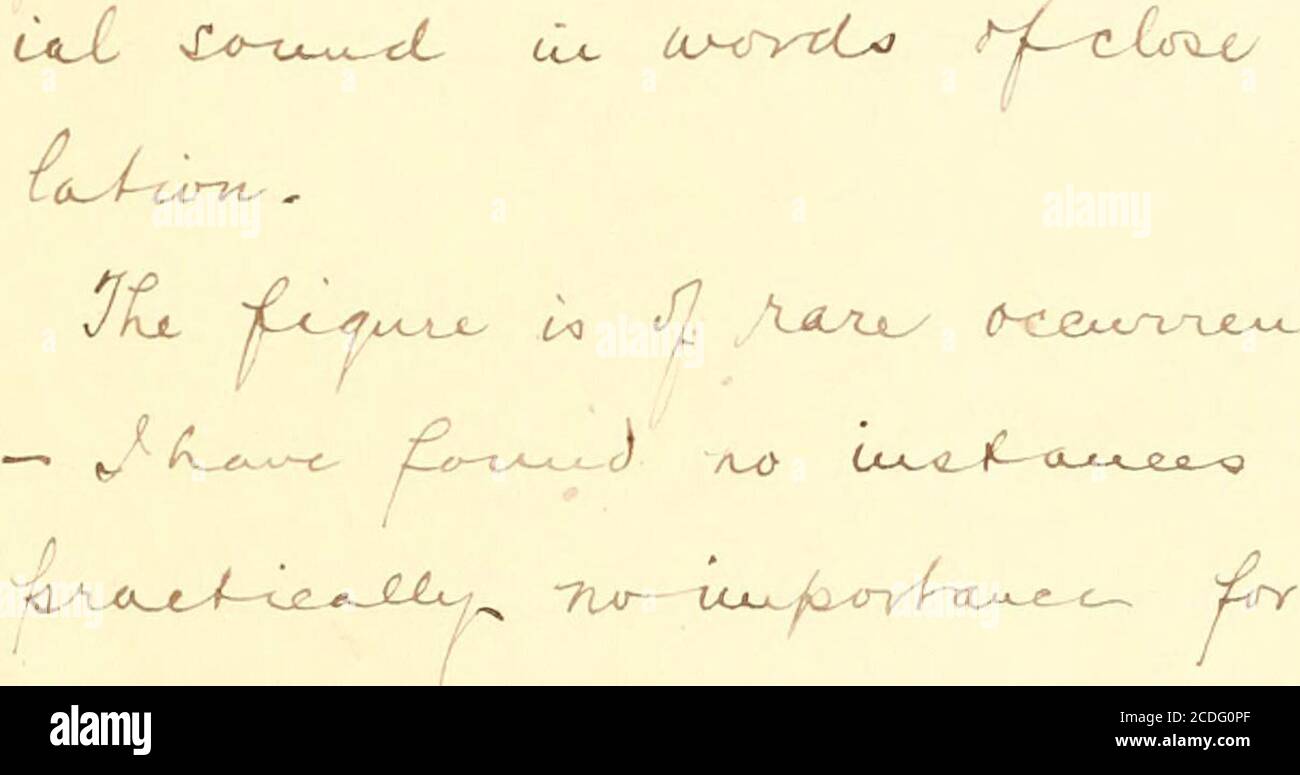 ial sound in words of close
lation.
The figure is of rare occurren
– I have found no instances
practically no importance for
alamy
Image ID: 2CDG0PF
www.alamy.com